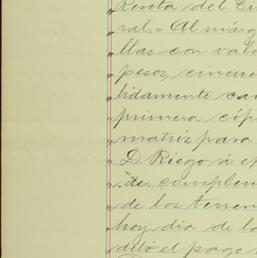 „Renta del Ti
„ral.= Al márg
„llas con valo
„pesos, cincuen
„bidamente can
„primera cóp
„matriz para
„D. Riego á ex
„de complem
„de los terren
„hoy dia de la
„ditó el pago